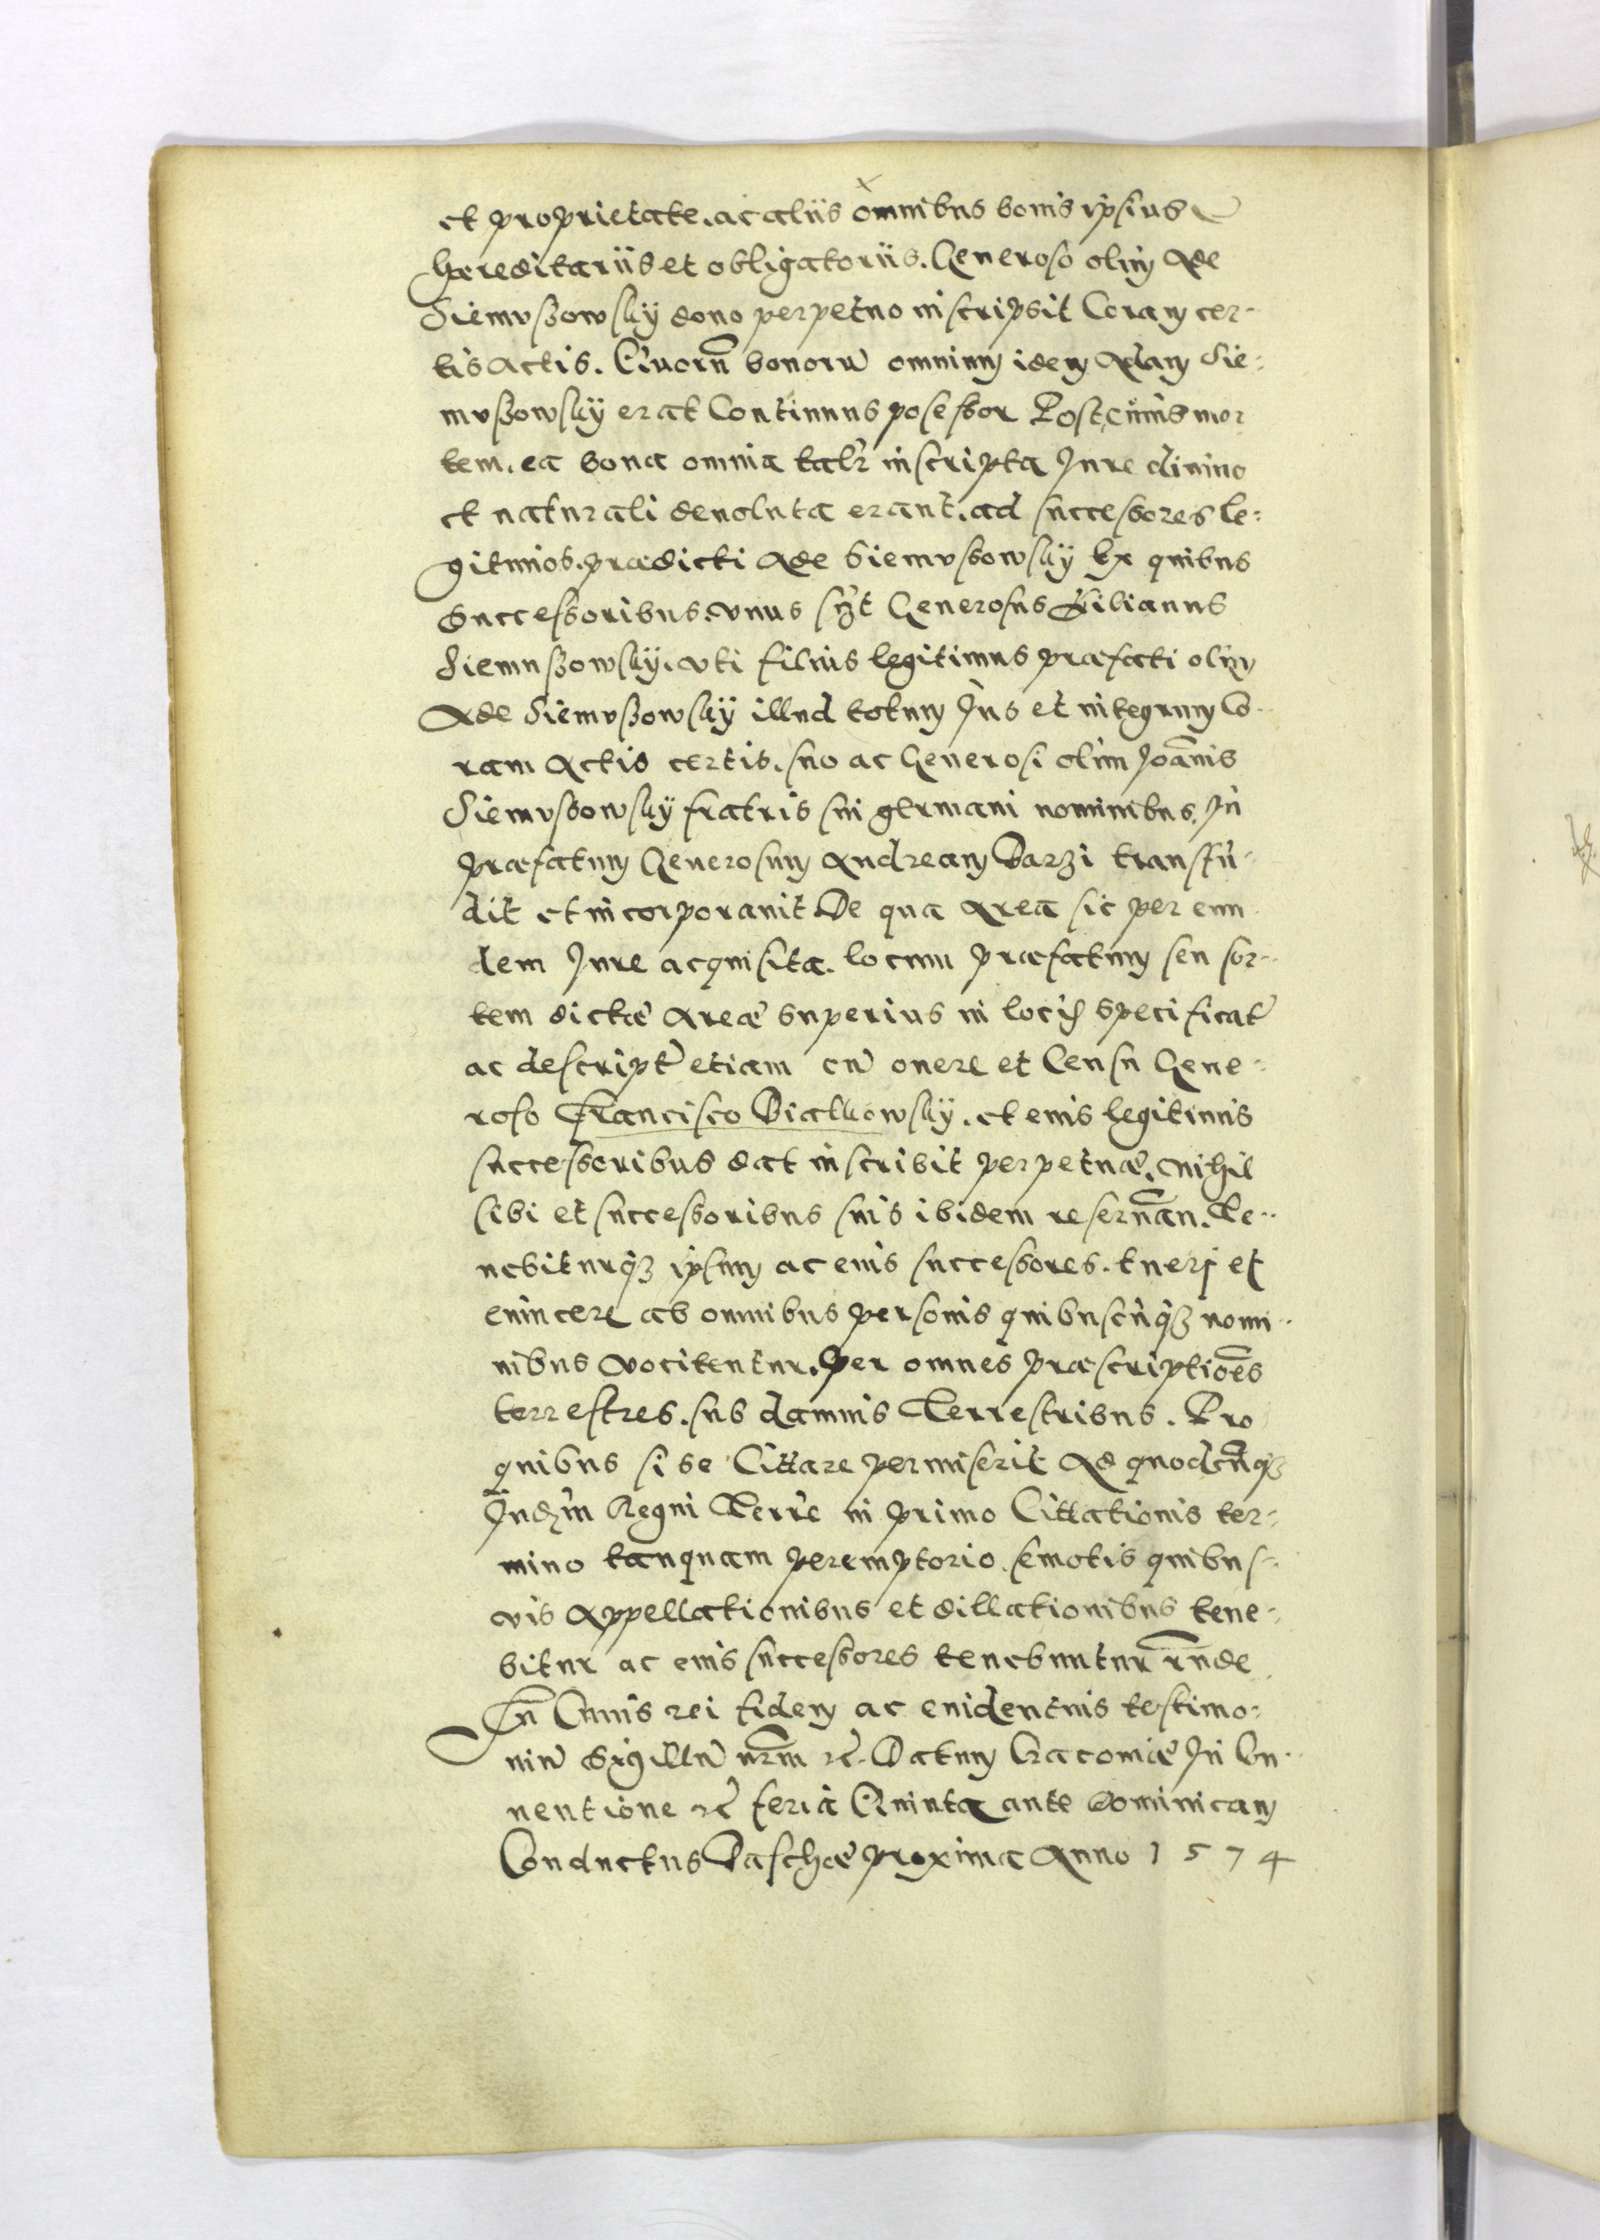 et proprietate. ac aliis omnibus bonis ipsius
hæreditariis et obligatoriis. Generoso olim Adæ
Siemuszowskÿ dono perpetuo inscripsit Coram cer-
tis Actis. Quorū bonorū omnium idem Adam Sie-
muszowskÿ erat Continuus possessor Post cuius mor
tem. ea bona omnia talr inscripta Jure diuino
et naturali deuoluta erant. ad successores le-
gitimos. prædicti Adæ Siemussowskÿ Ex quibus
Successoribus. unus Generosus Kilianus
Siemuszowskÿ. uti filius legitimus præfati olim
Adæ Siemuszowskÿ illud totum Jus et integrum Co-
ram Actis certis. suo ac Generosi olim Joānis
Siemussowskÿ fratris sui germani nominibus. In
præfatum Generosum Andream Barzi transfu-
dit et incorporauit De qua Area sic per eun
dem Jure acquisita. locum præfatum seu sor-
tem dictæ Areæ superius in locis specificat
ac descript etiam cū onere et Censu Gene-
roso Francisco Bialkowskÿ. et eius legitimis
successoribus dat inscribit perpetuæ. nihil
sibi et successoribus suis ibidem reseruan. Te-
nebiturq ipsum ac eius successores. tueri et
euincere ab omnibus personis quibuscunq nomi-
nibus vocitentur. per omnes præscriptiões
terrestres. sub damnis Terrestribus. Pro
quibus si se Cittare permiserit Ad quodcunq
Judm Regni Terre in primo Cittationis ter-
mino tanquam peremptorio. semotis quibus-
vis Appellationibus et dillationibus tene-
bitur ac eius successores tenebuntur rnde
In Cuius rei fidem ac euidentius testimo-
niū Sigillū nrm etc. Datum Cracouiæ In Cu-
uentione etc feria Quinta ante Dominicam
Conductus Paschæ proxima Anno 1574